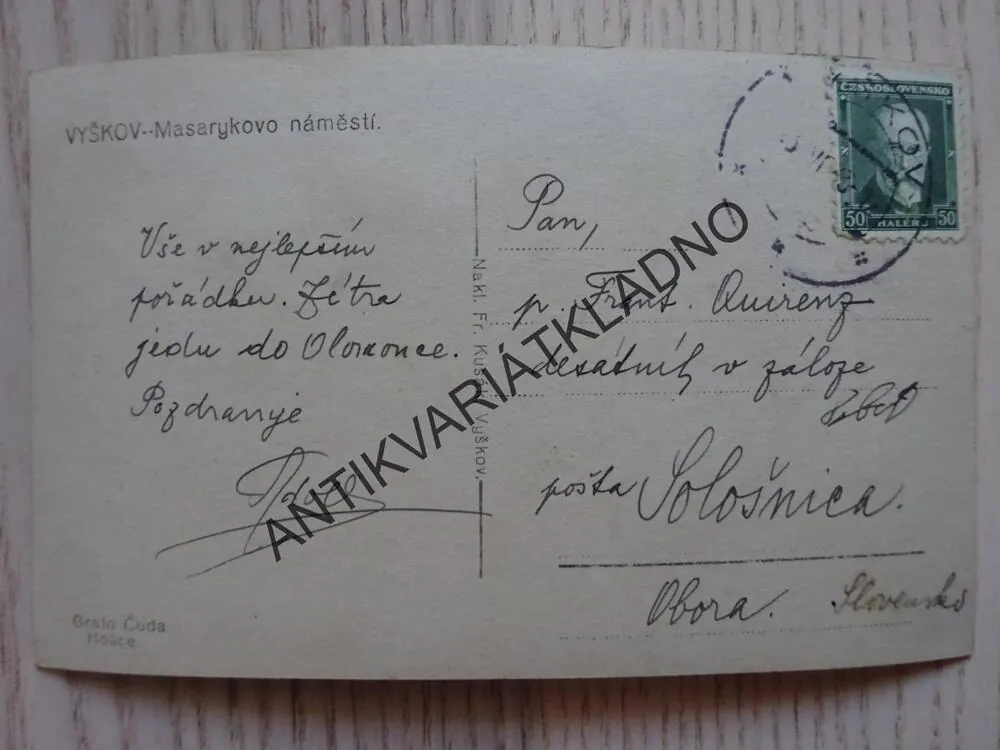 VYŠKOV--Masarykovo náměstí.
Vše v nejlepším
pořádku. Zítra
jedu do Olomouce.
Pozdravuje
Nakl. Fr. Kusák, Vyškov.
ČESKOSLOVENSKO
50 HALÉŘŮ 50
Pan,
p. Frant. Quirenz
desátník v záloze
pošta Sološnica.
Obora. Slovensko
Čuda
Holice
ANTIKVARIÁTKLADNO